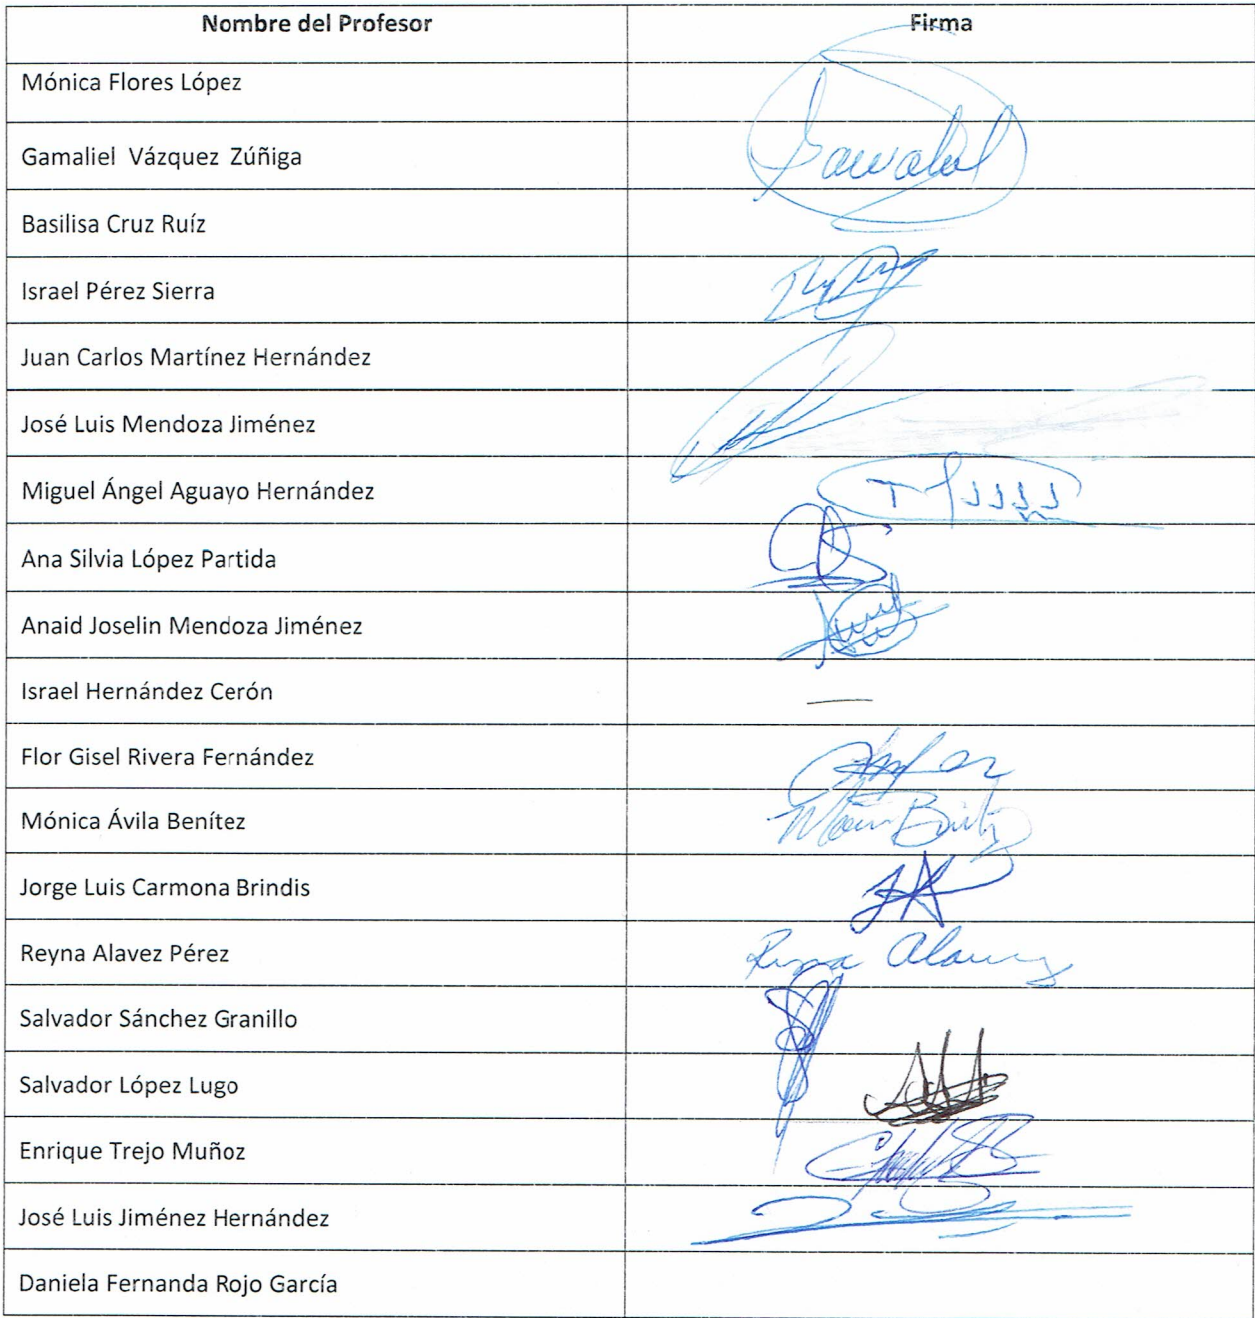 Nombre del Profesor Firma
Mónica Flores López
Gamaliel Vázquez Zúñiga
Basilisa Cruz Ruíz
Israel Pérez Sierra
Juan Carlos Martínez Hernández
José Luis Mendoza Jiménez
Miguel Ángel Aguayo Hernández
Ana Silvia López Partida
Anaid Joselin Mendoza Jiménez
Israel Hernández Cerón
Flor Gisel Rivera Fernández
Mónica Ávila Benítez
Jorge Luis Carmona Brindis
Reyna Alavez Pérez
Salvador Sánchez Granillo
Salvador López Lugo
Enrique Trejo Muñoz
José Luis Jiménez Hernández
Daniela Fernanda Rojo García